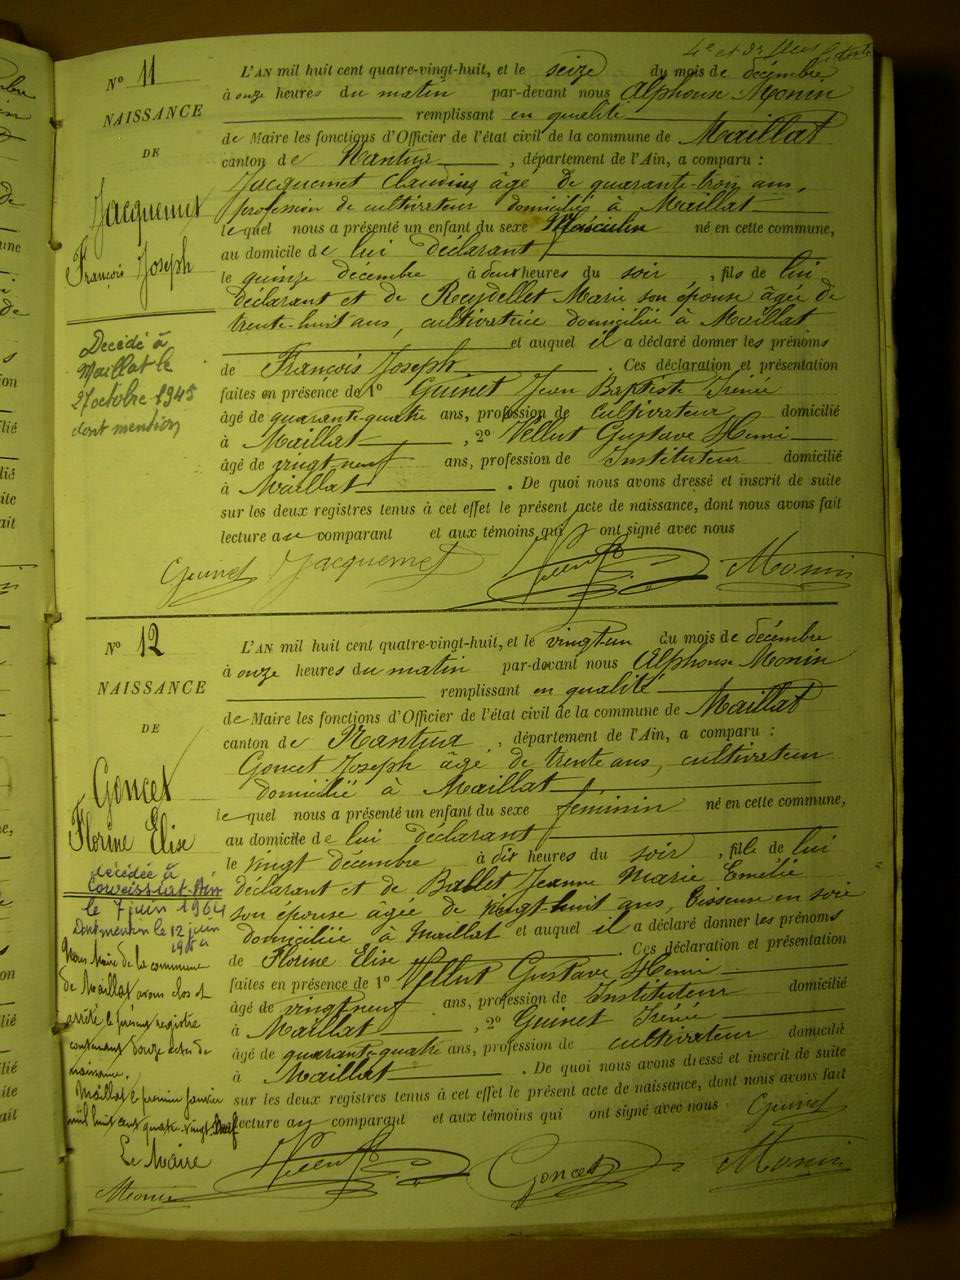 4e et
Nº 11
NAISSANCE
DE
Jacquemet
François Joseph
Décédé à
Maillat le
27 octobre 1945
dont mention
L'AN mil huit cent quatre-vingt-huit, et le seize du mois de décembre
à onze heures du matin par-devant nous Alphonse Monin
remplissant en qualité
de Maire les fonctions d'Officier de l'état civil de la commune de Maillat
canton de Nantua, département de l'Ain, a comparu :
Jacquemet Claudius âgé de quarante-trois ans,
profession de cultivateur domicilié à Maillat
lequel nous a présenté un enfant du sexe Masculin né en cette commune,
au domicile de lui déclarant
le quinze décembre à deux heures du soir, fils de lui
déclarant et de Reydellet Marie son épouse âgée de
trente-huit ans, cultivatrice domiciliée à Maillat
et auquel il a déclaré donner les prénoms
de François Joseph. Ces déclaration et présentation
faites en présence de 1º Guinet Jean Baptiste Irénée
âgé de quarante-quatre ans, profession de cultivateur domicilié
à Maillat, 2º Vellut Gustave Henri
âgé de vingt-neuf ans, profession de Instituteur domicilié
à Maillat. De quoi nous avons dressé et inscrit de suite
sur les deux registres tenus à cet effet le présent acte de naissance, dont nous avons fait
lecture au comparant et aux témoins qui ont signé avec nous
Guinet Jacquemet Vellut Monin
Nº 12
NAISSANCE
DE
Goncet
Florine Elise
décédée à
Corveissiat Ain
le 7 juin 1964
Dont mention le 12 juin
1964
Nous Maire de la commune
de Maillat avons clos et
arrêté le présent registre
contenant douze actes de
naissance.
Maillat le premier janvier
mil huit cent quatre-vingt-neuf
Le Maire
Monin
L'AN mil huit cent quatre-vingt-huit, et le vingt-un du mois de décembre
à onze heures du matin par-devant nous Alphonse Monin
remplissant en qualité
de Maire les fonctions d'Officier de l'état civil de la commune de Maillat
canton de Nantua, département de l'Ain, a comparu :
Goncet Joseph âgé de trente ans, cultivateur
domicilié à Maillat
lequel nous a présenté un enfant du sexe féminin né en cette commune,
au domicile de lui déclarant
le vingt décembre à dix heures du soir, fille de lui
déclarant et de Ballet Jeanne Marie Emélie
son épouse âgée de vingt-huit ans, tisseuse en soie
domiciliée à Maillat et auquel il a déclaré donner les prénoms
de Florine Elise. Ces déclaration et présentation
faites en présence de 1º Vellut Gustave Henri
âgé de vingt neuf ans, profession de Instituteur domicilié
à Maillat, 2º Guinet Irénée
âgé de quarante-quatre ans, profession de cultivateur domicilié
à Maillat. De quoi nous avons dressé et inscrit de suite
sur les deux registres tenus à cet effet le présent acte de naissance, dont nous avons fait
lecture au comparant et aux témoins qui ont signé avec nous Guinet
Vellut Goncet Monin